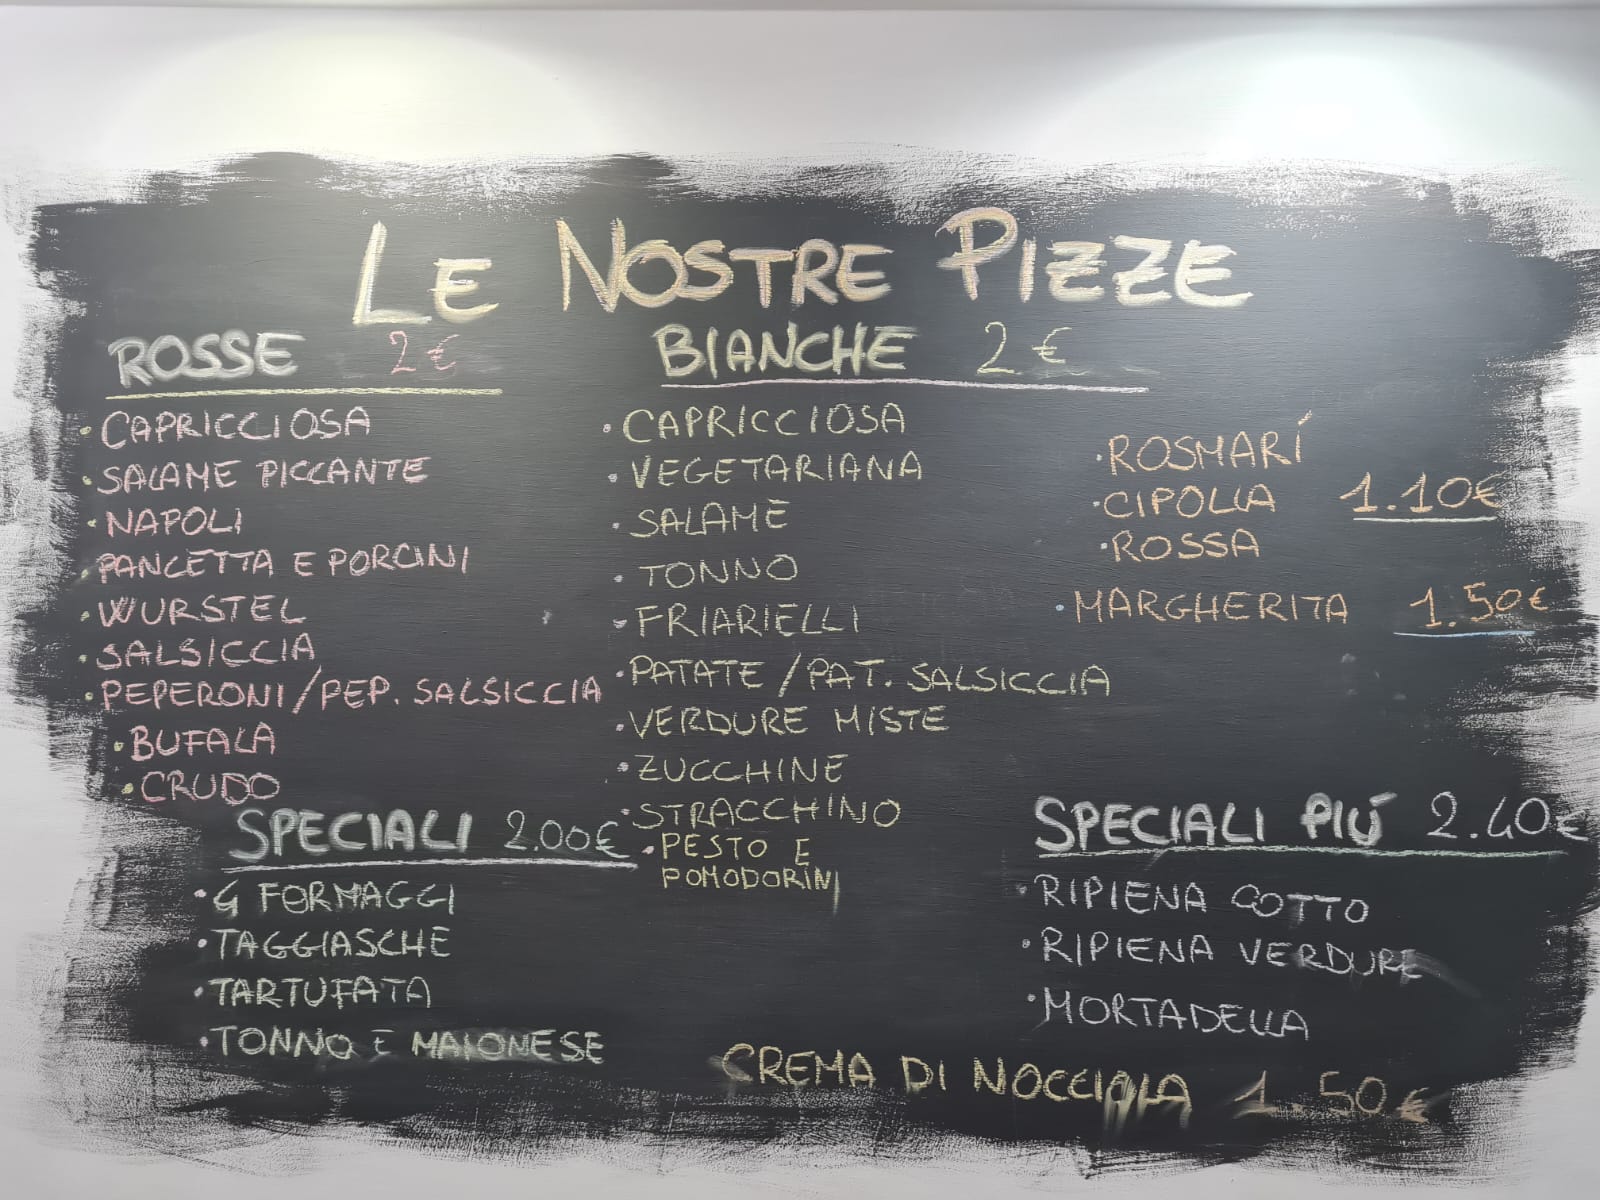 LE NOSTRE PIZZE
ROSSE 2€
• CAPRICCIOSA
• SALAME PICCANTE
• NAPOLI
• PANCETTA E PORCINI
• WURSTEL
• SALSICCIA
• PEPERONI/PEP. SALSICCIA
• BUFALA
• CRUDO
BIANCHE 2€
• CAPRICCIOSA
• VEGETARIANA
• SALAME
• TONNO
• FRIARIELLI
• PATATE/PAT. SALSICCIA
• VERDURE MISTE
• ZUCCHINE
• STRACCHINO
• PESTO E
POMODORINI
• ROSMARÍ
• CIPOLLA 1.10€
• ROSSA
• MARGHERITA 1.50€
SPECIALI 2.00€
• 4 FORMAGGI
• TAGGIASCHE
• TARTUFATA
• TONNO E MAIONESE
SPECIALI PIÚ 2.40€
• RIPIENA COTTO
• RIPIENA VERDURE
• MORTADELLA
CREMA DI NOCCIOLA 1.50€